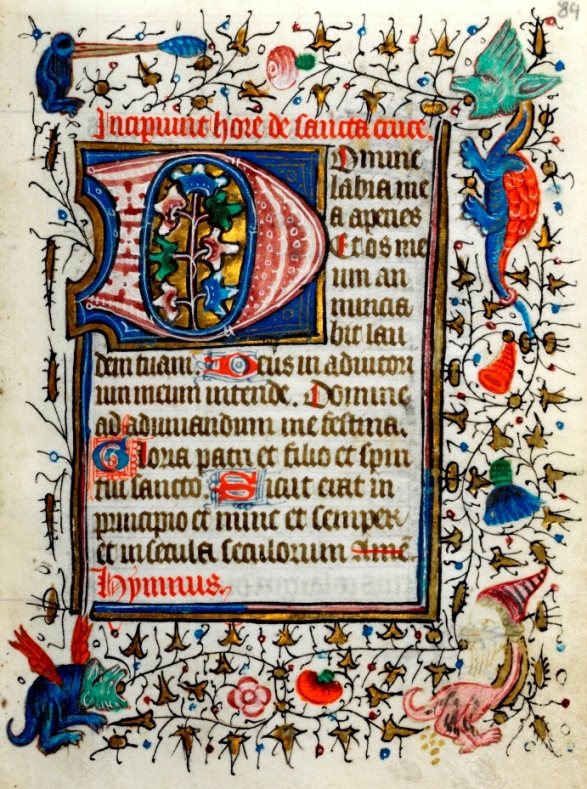 84
Incipiunt hore de sancta cruce.
Domine
labia me
a aperies
Et os me
um an
nuncia
bit lau
dem tuam. Deus in adiutori
um meum intende. Domine
ad adiuuandum me festina.
Gloria patri et filio et spiri
tui sancto Sicut erat in
principio et nunc et semper
et in secula seculorum Amē.
Hymnus.